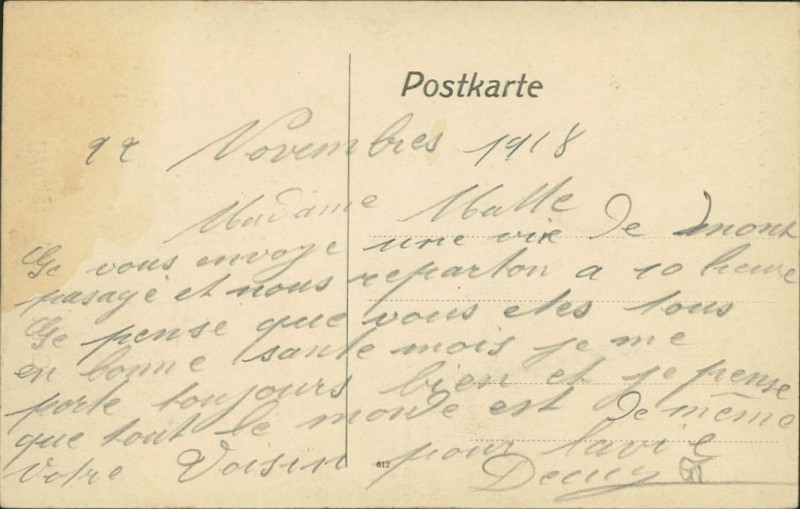 Postkarte
Novembres 1918
Madame Malle
Ge vous envoye une vix de mont
pasage et nous reparton a 10 heure
Ge pense que vous etes tous
en bonne sante mois je me
porte toujours bien et je pense
que tout le monde est de même
Votre Voisin pour la vie
612